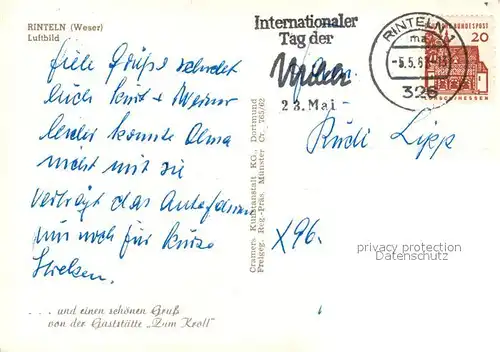 RINTELN (Weser)
Luftbild
Internationaler
Tag der
Milch
23. Mai
RINTELN
-5.5.6
326
BUNDESPOST
20
Viele Grüße sendet
Euch Kurt + Werner
leider konnte Oma
nicht mit sie
verträgt das Autofahren
nur noch für kurze
Strecken.
Rudi Lipp
X96.
Cramers Kunstanstalt KG., Dortmund
Freigeg. Reg.-Präs. Münster Cr. 765/62
privacy protection
watermark
. . . und einen schönen Gruß
von der Gaststätte „Zum Kroll"